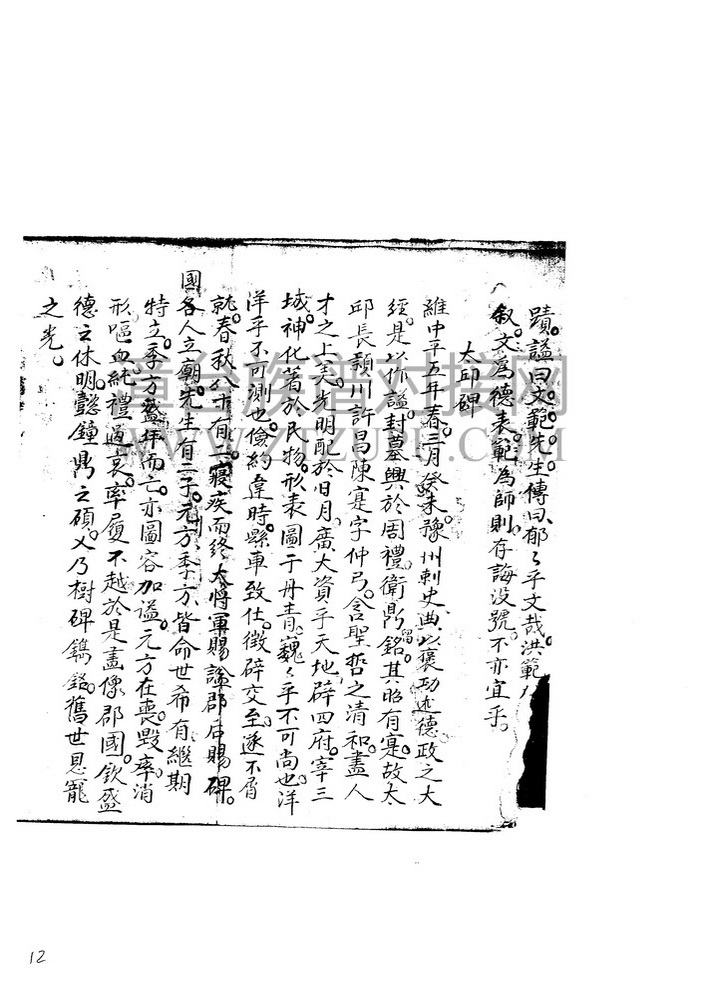 蹟。謚曰文範先生。傳曰、郁〻乎文哉。洪範
叙。文為德表。範為師則。存誨没號。不亦宜乎。
太邱碑
維中平五年春三月癸未。豫州刺史典。以褒功述德。政之大
經。是以作謚封墓。興於周禮。衛鼎銘。其昭有寔。故太
邱長潁川許昌陳寔字仲弓。含聖哲之清和。盡人
才之上美。光明配於日月。廣大資乎天地。辟四府。宰三
城。神化著於民物。形表圖于丹青。巍〻乎不可尚也。洋
洋乎不可測也。儉約違時。縣車致仕。徵辟交至。遂不屑
就。春秋八十有三。寢疾而終。大將軍賜謚。郡后賜碑。
國各人立廟。先生有二子。元方季方。皆命世希有。繼期
特立。季方盛年而亡。亦圖容加謚。元方在喪。毀瘁消
形。嘔血純禮過哀。率履不越。於是畫像郡國。欽盛
德之休明。懿鐘鼎之碩。乂乃樹碑鐫銘。舊世恩寵
之光。
章台族譜对接网
WWW.ZTZUPU.COM
12